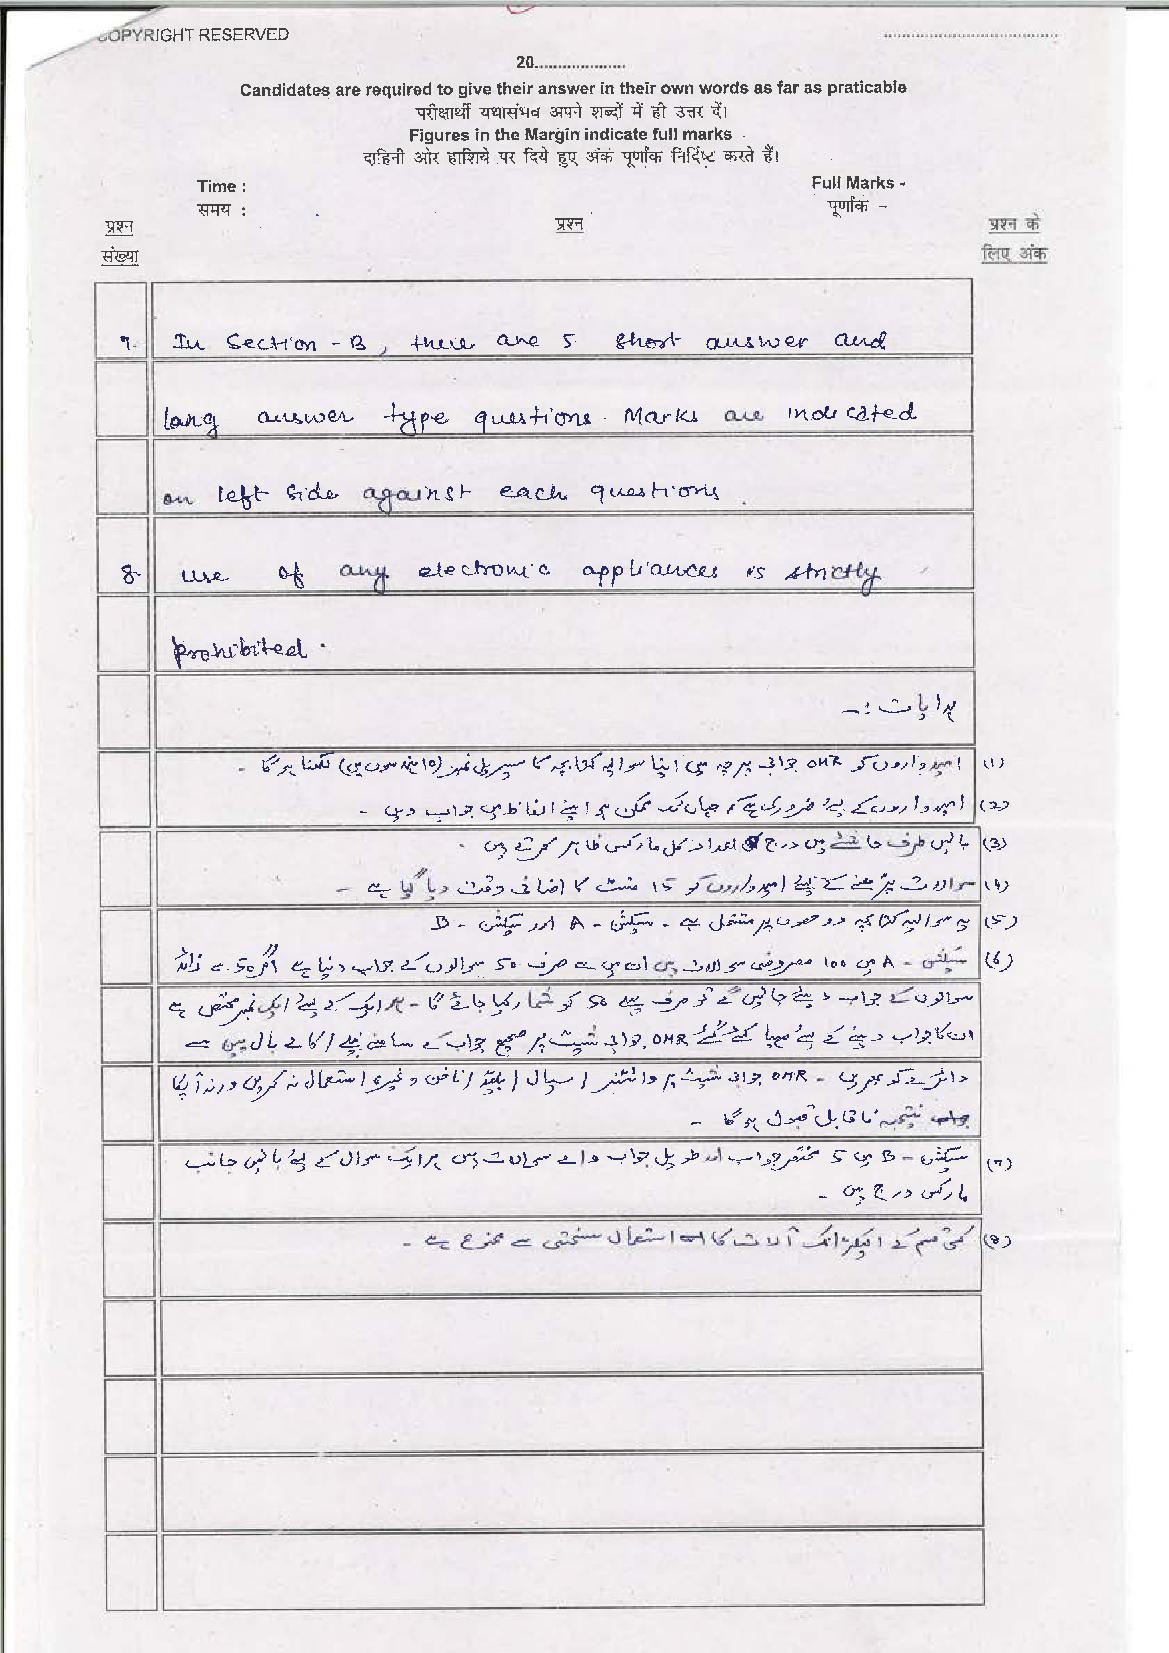 COPYRIGHT RESERVED ......................................
20.....................
Candidates are required to give their answer in their own words as far as praticable
परीक्षार्थी यथासंभव अपने शब्दों में ही उत्तर दें।
Figures in the Margin indicate full marks
दाहिनी ओर हाशिये पर दिये हुए अंक पूर्णांक निर्दिष्ट करते हैं।
Time : Full Marks -
समय : पूर्णांक –
प्रश्न संख्या प्रश्न प्रश्न के लिए अंक
7. In Section - B, there are 5 short answer and
long answer type questions. Marks are indicated
on left side against each questions.
8. use of any electronic appliances is strictly
prohibited.
ہدایات :۔
(1) امیدواروں کو OMR جوابی پرچہ میں اپنا سوالیہ کتابچہ کا سیریل نمبر (10 ہندسوں میں) لکھنا ہوگا ۔
(2) امیدواروں کے لیے ضروری ہے کہ جہاں تک ممکن ہو اپنے الفاظ میں جواب دیں ۔
(3) بائیں طرف حاشیے میں درج اعداد کل مارکس ظاہر کرتے ہیں ۔
(4) سوالات پڑھنے کے لیے امیدواروں کو 15 منٹ کا اضافی وقت دیا گیا ہے ۔
(5) یہ سوالیہ کتابچہ دو حصوں پر مشتمل ہے ۔ سیکشن - A اور سیکشن - B
(6) سیکشن - A میں 100 معروضی سوالات ہیں ان میں سے صرف 50 سوالوں کے جواب دینا ہے اگر 50 سے زائد
سوالوں کے جواب دیئے جائیں گے تو صرف پہلے 50 کو شمار کیا جائے گا ۔ ہر ایک کے لیے ایک نمبر مختص ہے
ان کا جواب دینے کے لیے مہیا کئے گئے OMR جوابی شیٹ پر صحیح جواب کے سامنے نیلے / کالے بال پین سے
دائرے کو بھریں ۔ OMR جوابی شیٹ پر وائٹنر / سیال / بلیڈ / ناخن وغیرہ استعمال نہ کریں ورنہ آپکا
نتیجہ ناقابل قبول ہوگا ۔
(7) سیکشن - B میں 5 مختصر جواب اور طویل جواب والے سوالات ہیں ہر ایک سوال کے لیے بائیں جانب
مارکس درج ہیں ۔
(8) کسی قسم کے الیکٹرانک آلات کا استعمال سختی سے ممنوع ہے ۔